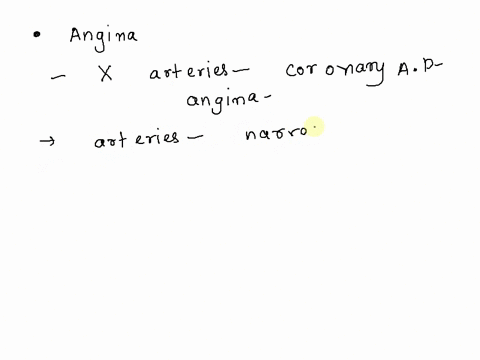 • Angina
– X arteries – coronary A.D –
angina –
→ arteries – narro